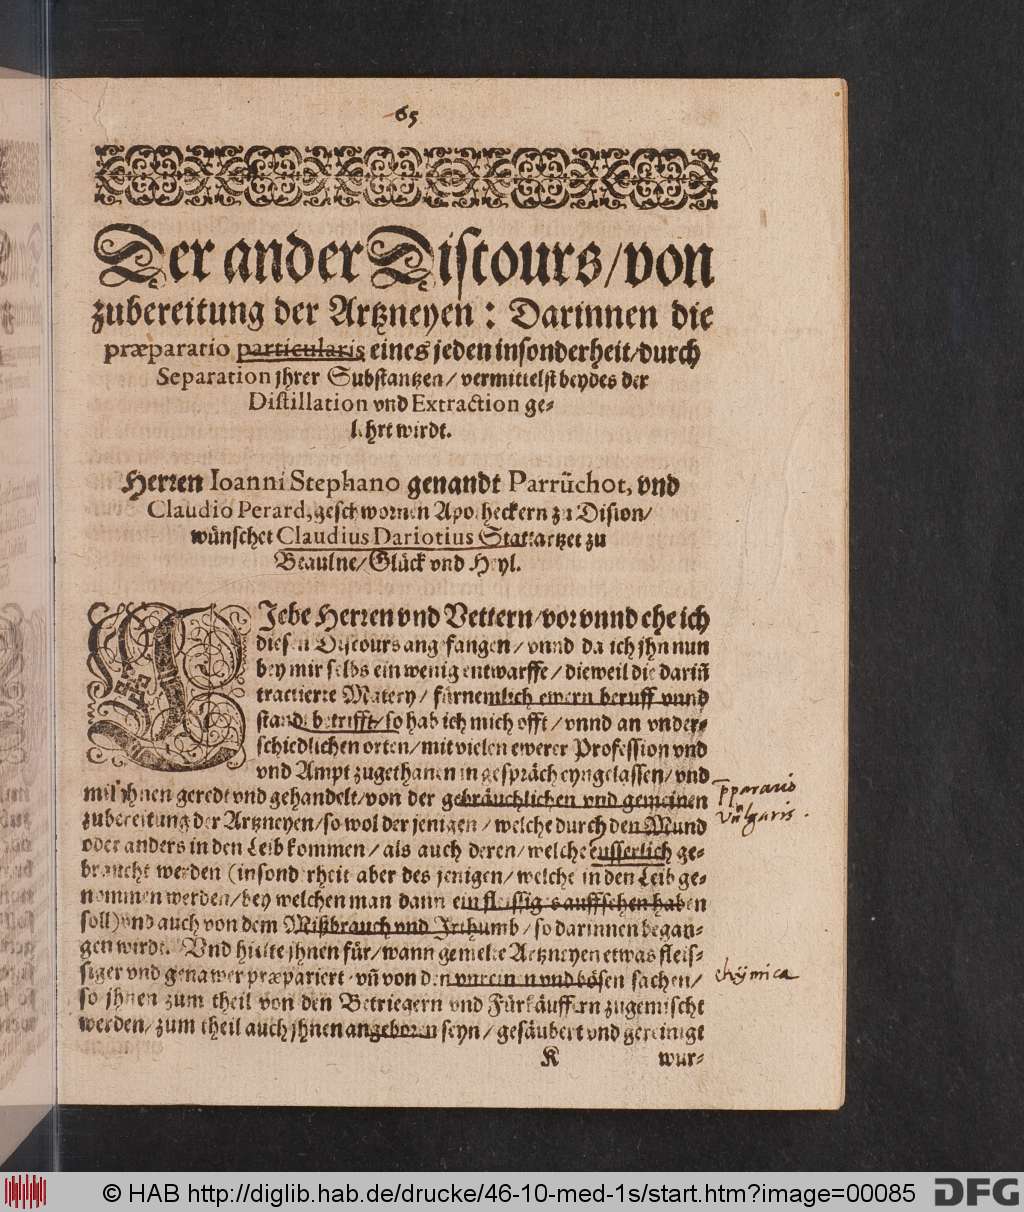 65
Der ander Discours/von
zubereitung der Artzneyen: Darinnen die
præparatio particularis eines jeden insonderheit/durch
Separation jhrer Substantzen/ vermittelst beydes der
Distillation vnd Extraction ge-
lehrt wirdt.
Herren Ioanni Stephano genandt Parrüchot, vnd
Claudio Perard, geschwornen Apotheckern zu Dision/
wünschet Claudius Dariotius Stattartzet zu
Beaulne/Glück vnd Heyl.
LIebe Herren vnd Vettern/vor vnnd ehe ich
diesen Discours angefangen/ vnnd da ich jhn nun
bey mir selbs ein wenig entwarffe/ dieweil die dariñ
tractierte Matery/ fürnemlich ewern beruff vnnd
stande betrifft/so hab ich mich offt/ vnnd an vnder-
schiedlichen orten/mit vielen ewerer Profession vnd
vnd Ampt zugethanen in gespräch eyngelassen/ vnd
mit jhnen geredt vnd gehandelt/von der gebräuchlichen vnd gemeinen
zubereitung der Artzneyen/so wol der jenigen/ welche durch den Mund
oder anders in den Leib kommen/ als auch deren/welche eusserlich ge-
braucht werden (insonderheit aber des jenigen/ welche in den Leib ge-
nommen werden/bey welchen man dann ein fleissiges auffsehen haben
soll) vnd auch von dem Mißbrauch vnd Irthumb/ so darinnen began-
gen wirdt. Vnd hielte jhnen für/wann gemelte Artzneyen etwas fleis-
siger vnd genawer præpariert/ vñ von den vnreinen vnd bösen sachen/
so jhnen zum theil von den Betriegern vnd Fürkäuffern zugemischt
werden/zum theil auch jhnen angeboren seyn/ gesäubert vnd gereinigt
K wur-
vulgaris.
chÿmica
© HAB http://diglib.hab.de/drucke/46-10-med-1s/start.htm?image=00085
DFG